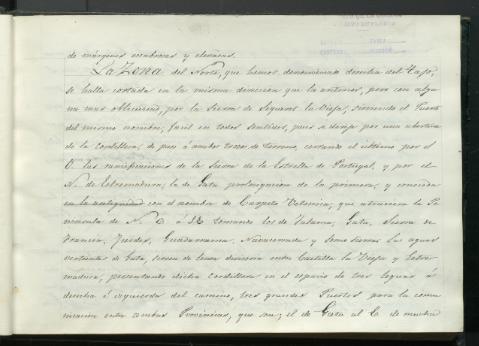 de márgenes escabrosas y elevadas.
La Zona del Norte, que hemos denominado derecha del Tajo,
se halla cortada en la misma direccion que la anterior, pero con algu
na mas oblicuidad, por la Sierra de Segura la Vieja, sirviendo el Puerto
del mismo nombre, facil en todos sentidos, pues se dirige por una abertura
de la Cordillera; de pues á ambos trozos de terreno, cerrando el ultimo por el
O. las ramificaciones de la Sierra de la Estrella de Portugal, y por el
N. de Estremadura, la de Gata prolongacion de la primera, y conocida
en la antigüedad con el nombre de Carpeto Vetonica, que atraviesa la Pe
ninsula de N. E. á S.O. tomando los de Jalama, Gata, Sierra de
Francia, Jurdes, Guadarrama, Navacerrada y Somosierra las aguas
vertientes de Gata, sirven de linea divisoria entre Castilla la Vieja y Estre
madura, presentando dicha Cordillera en el espacio de tres leguas á
derecha é izquierda del camino, tres grandes Puertos para la comu
nicacion entre ambas Provincias, que son; el de Gata al E. de nuestro